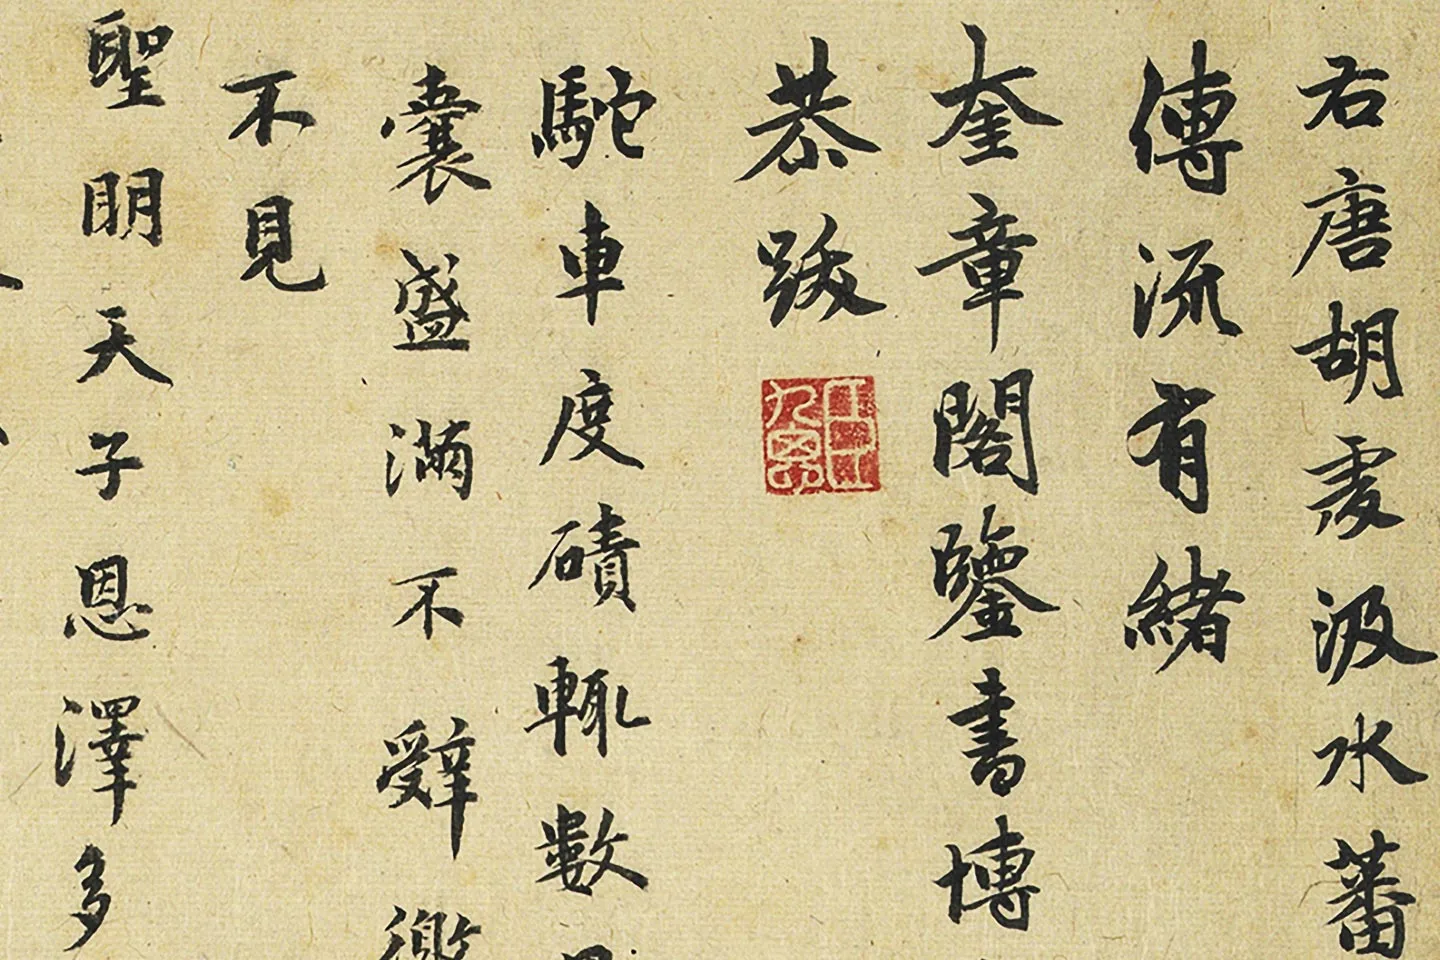 右唐胡虔汲水蕃
傳流有緒
奎章閣鑒書博
恭跋
駝車度磧輒數
囊盛滿不辭
不見
聖明天子恩澤多